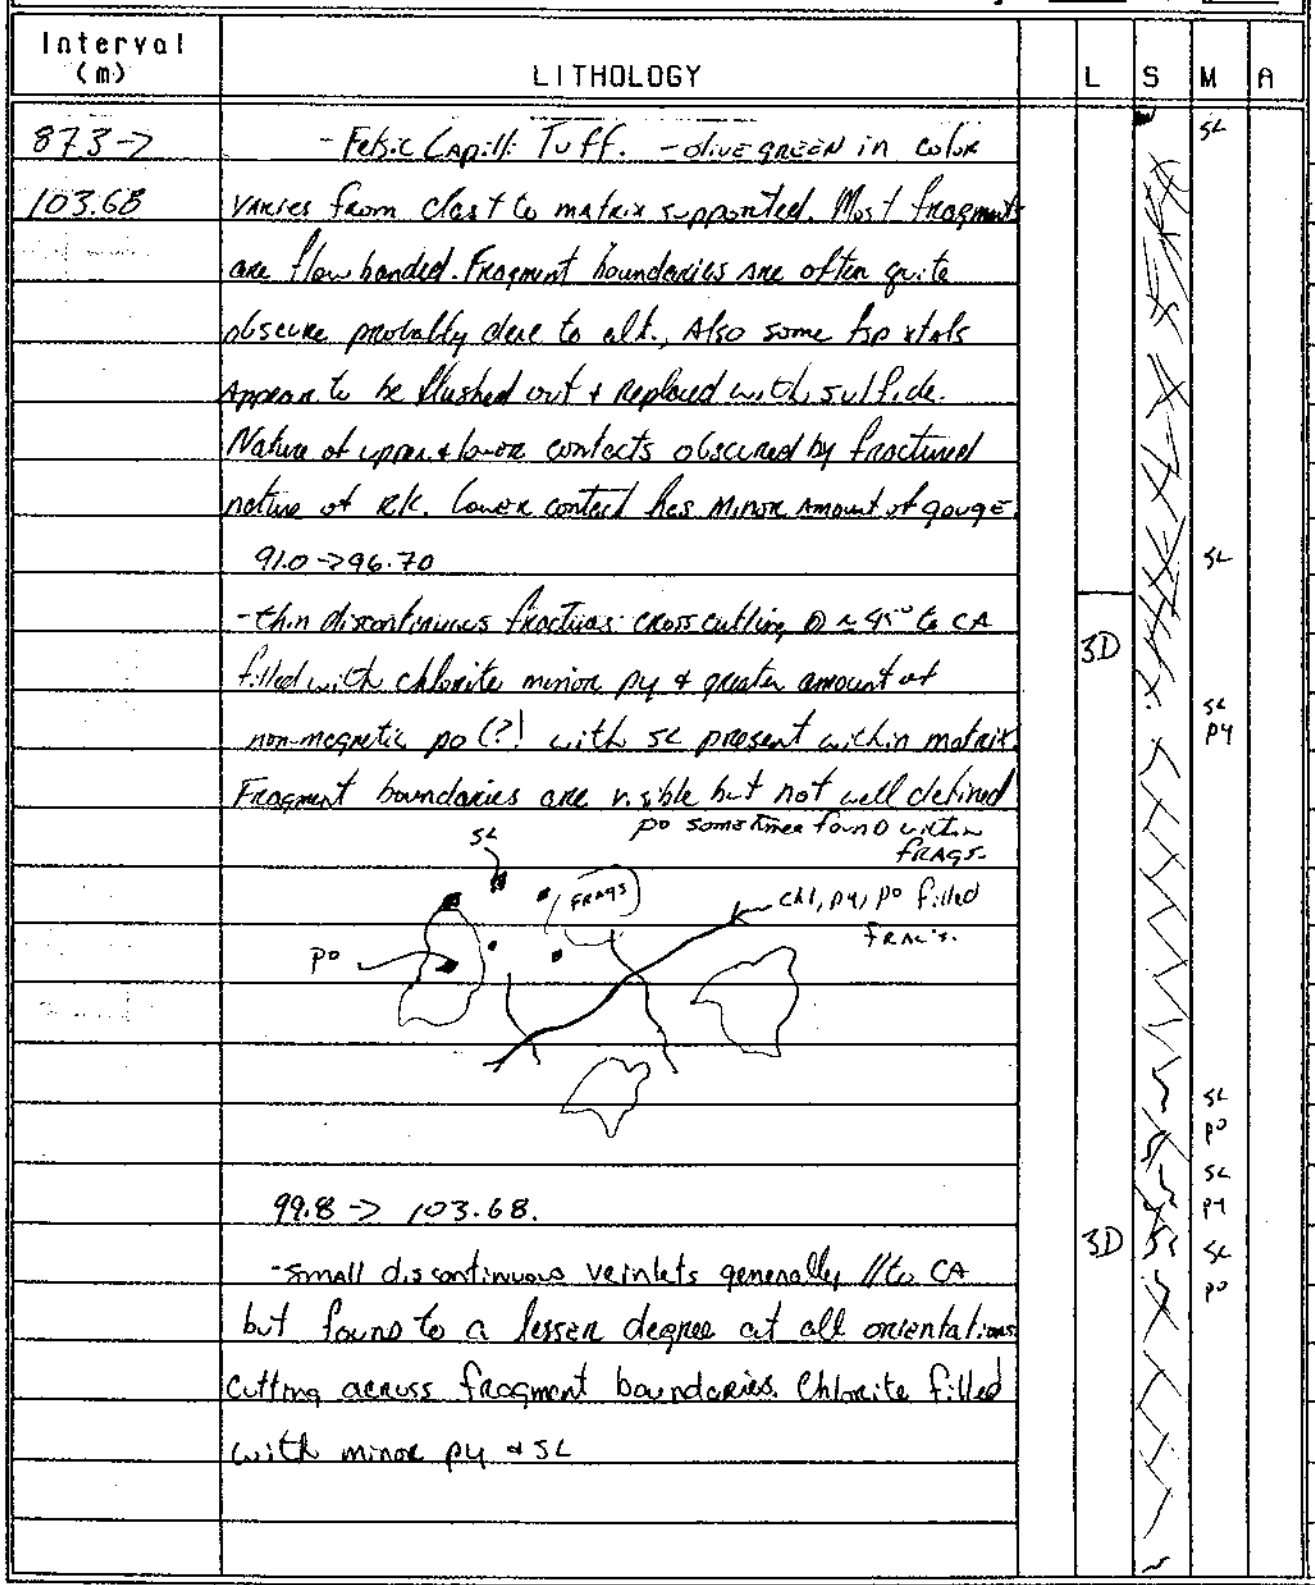 Interval
(m) LITHOLOGY L S M A
87.3-> - Felsic Lapilli Tuff. - olive green in color SL
103.68 varies from clast to matrix supported. Most fragments
are flow banded. Fragment boundaries are often quite
obscure probably due to alt., Also some fsp xtals
Appear to be flushed out + Replaced with sulfide.
Nature of upper + lower contacts obscured by fractured
nature of rk. Lower contact has minor amount of gouge.
91.0->96.70 SL
-thin discontinuous fractures crosscutting @ ~45° to CA
3D
filled with chlorite minor py & greater amount of
SL
non-magnetic po(?) with SL present within matrix.
PY
Fragment boundaries are visible but not well defined
po sometimes found within
FRAGS.
SL
FRAGS
chl, py, po filled
FRAC's.
po
SL
po
SL
99.8 -> 103.68. PY
3D SL
-small discontinuous veinlets generally // to CA
po
but found to a lesser degree at all orientations
cutting across fragment boundaries. Chlorite filled
with minor py & SL